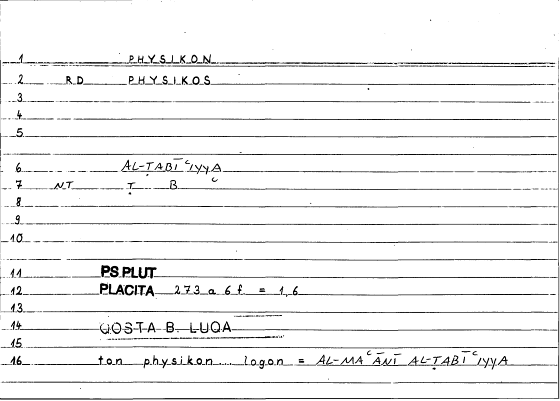 1 PHYSIKON
2 RD PHYSIKOS
3
4
5
6 AL-ṬABĪʿIYYA
7 NT Ṭ B ʿ
8
9
10
11 PS PLUT
12 PLACITA 273 a 6 f. = 1,6
13
14 QOSTA B. LUQA
15
16 ton physikon... logon = AL-MAʿĀNĪ AL-ṬABĪʿIYYA